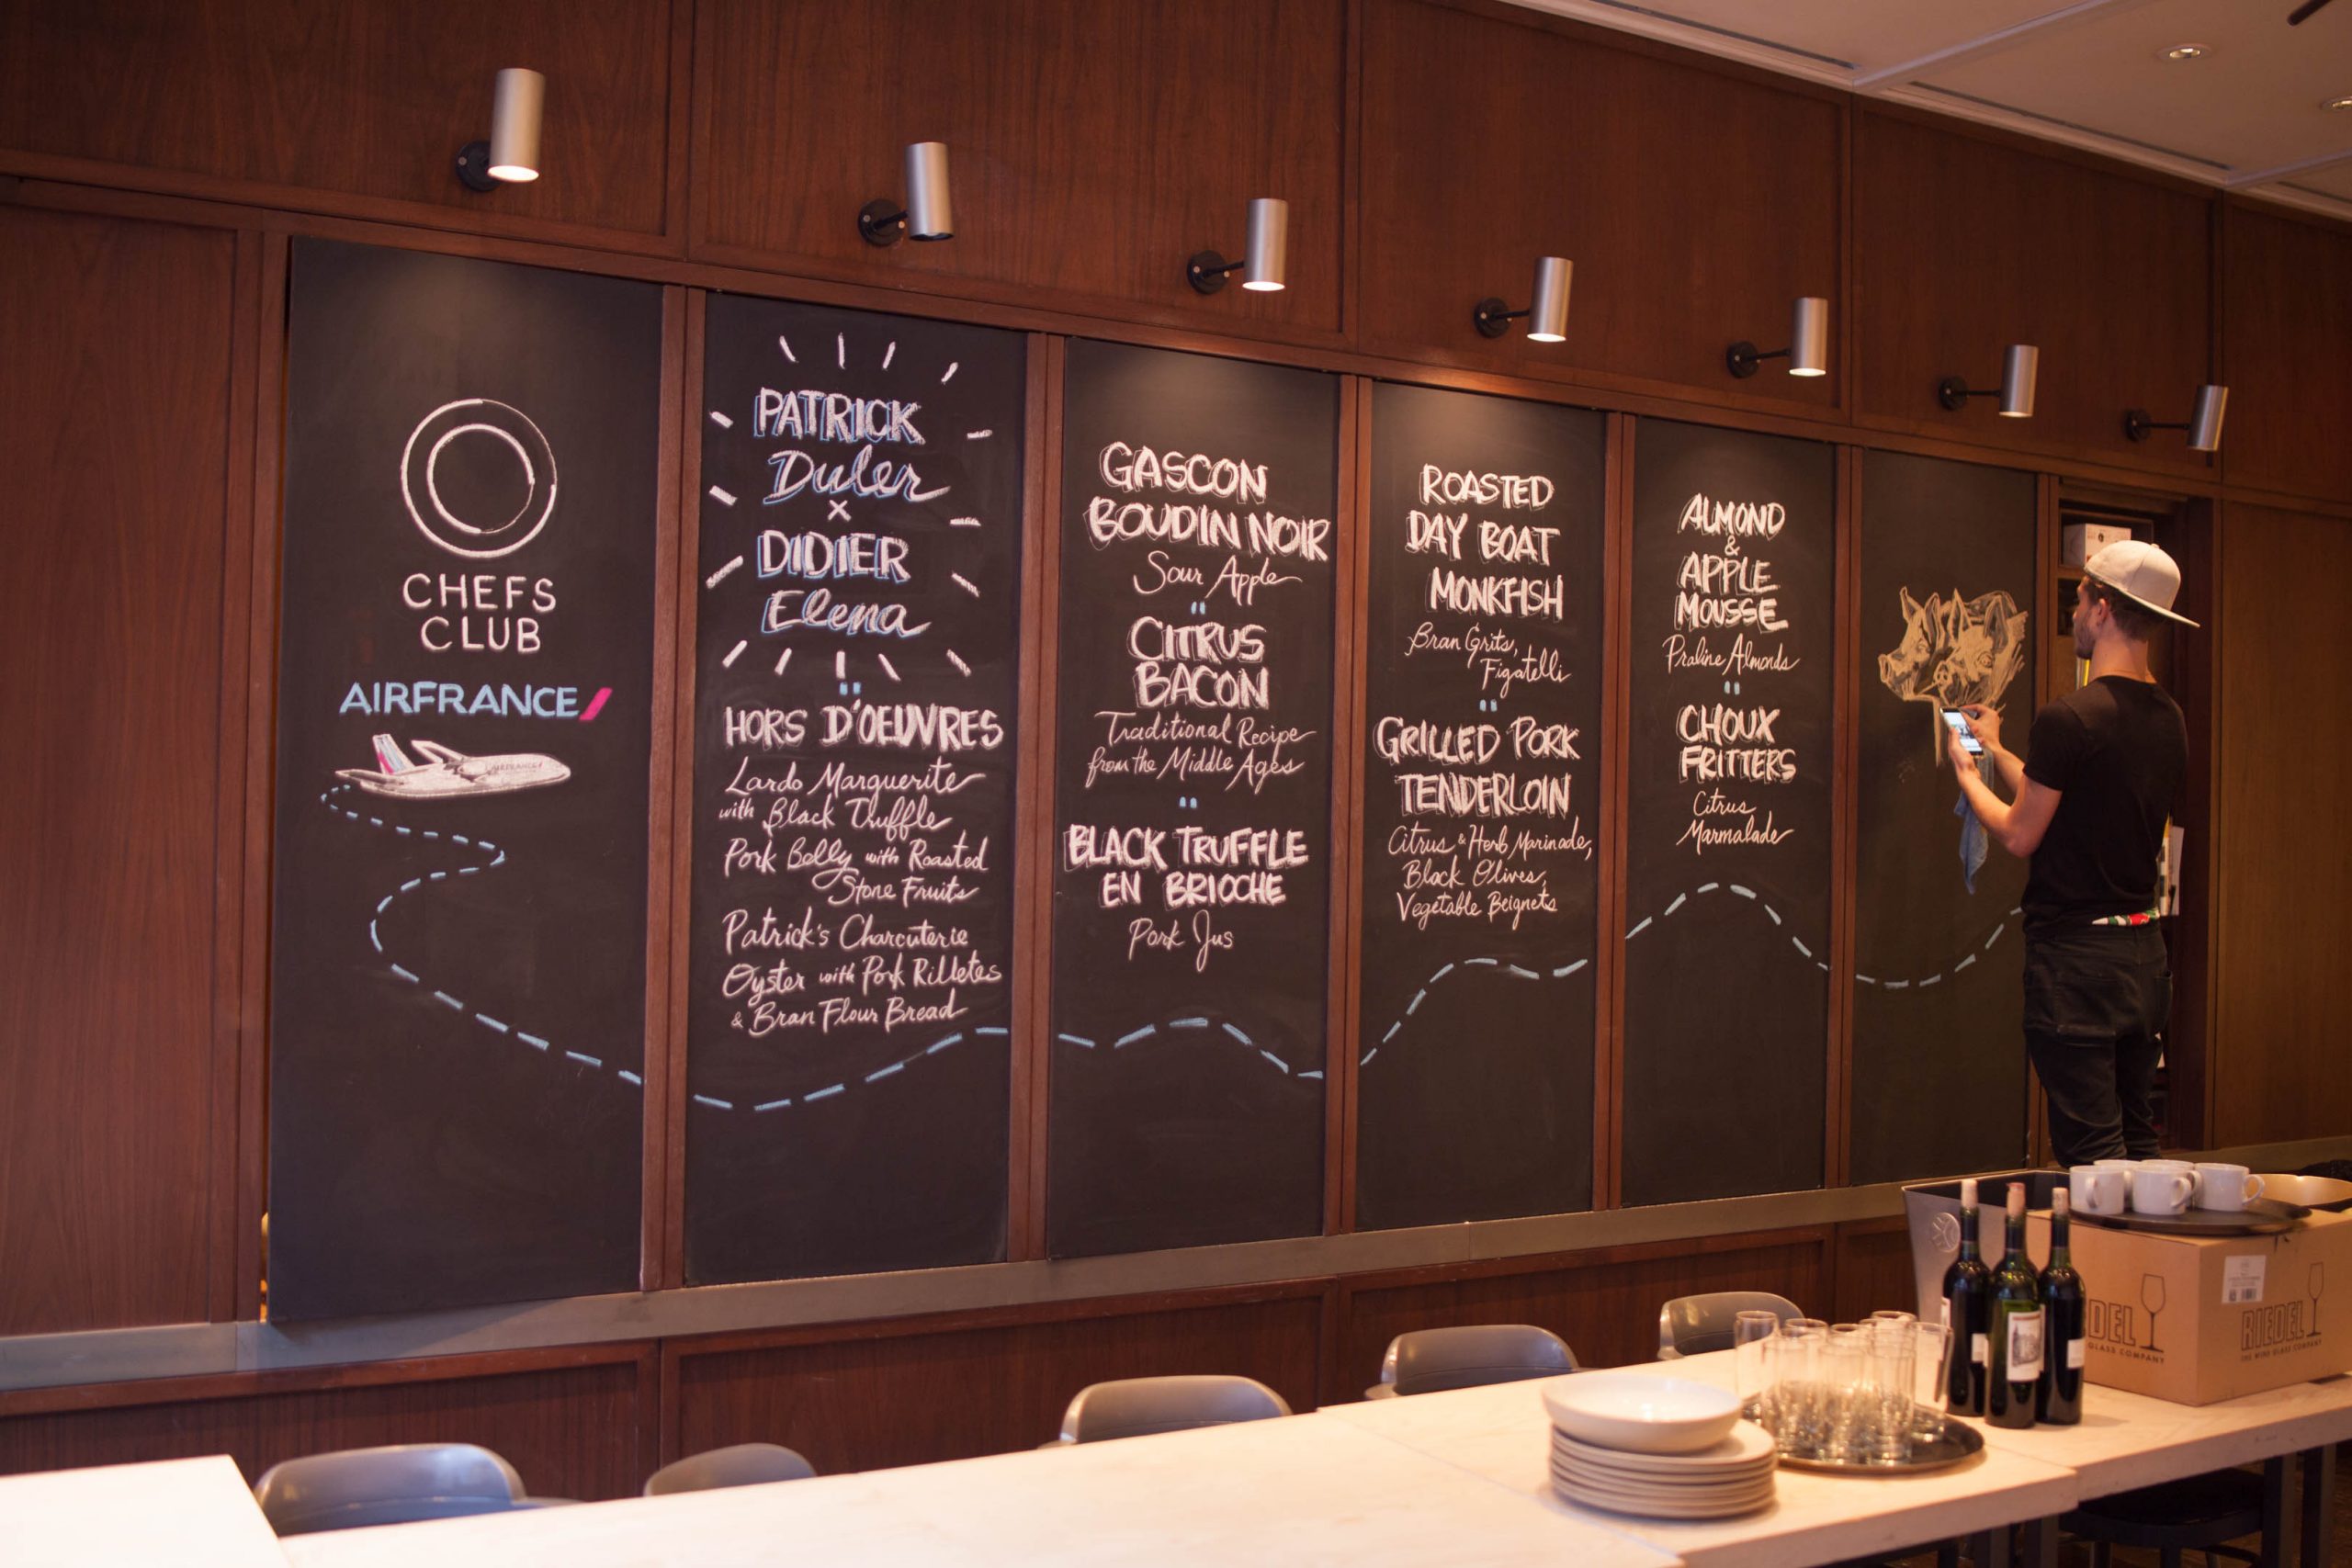 CHEFS
CLUB
AIRFRANCE
AIRFRANCE
PATRICK
Duler
x
DIDIER
Elena
HORS D'OEUVRES
Lardo Marguerite
with Black Truffle
Pork Belly with Roasted
Stone Fruits
Patrick's Charcuterie
Oyster with Pork Rilletes
& Bran Flour Bread
GASCON
BOUDIN NOIR
Sour Apple
CITRUS
BACON
Traditional Recipe
from the Middle Ages
BLACK TRUFFLE
EN BRIOCHE
Pork Jus
ROASTED
DAY BOAT
MONKFISH
Bran Grits,
Figatelli
GRILLED PORK
TENDERLOIN
Citrus & Herb Marinade,
Black Olives,
Vegetable Beignets
ALMOND
&
APPLE
MOUSSE
Praline Almonds
CHOUX
FRITTERS
Citrus
Marmalade
DEL
GLASS COMPANY
RIEDEL
THE WINE GLASS COMPANY